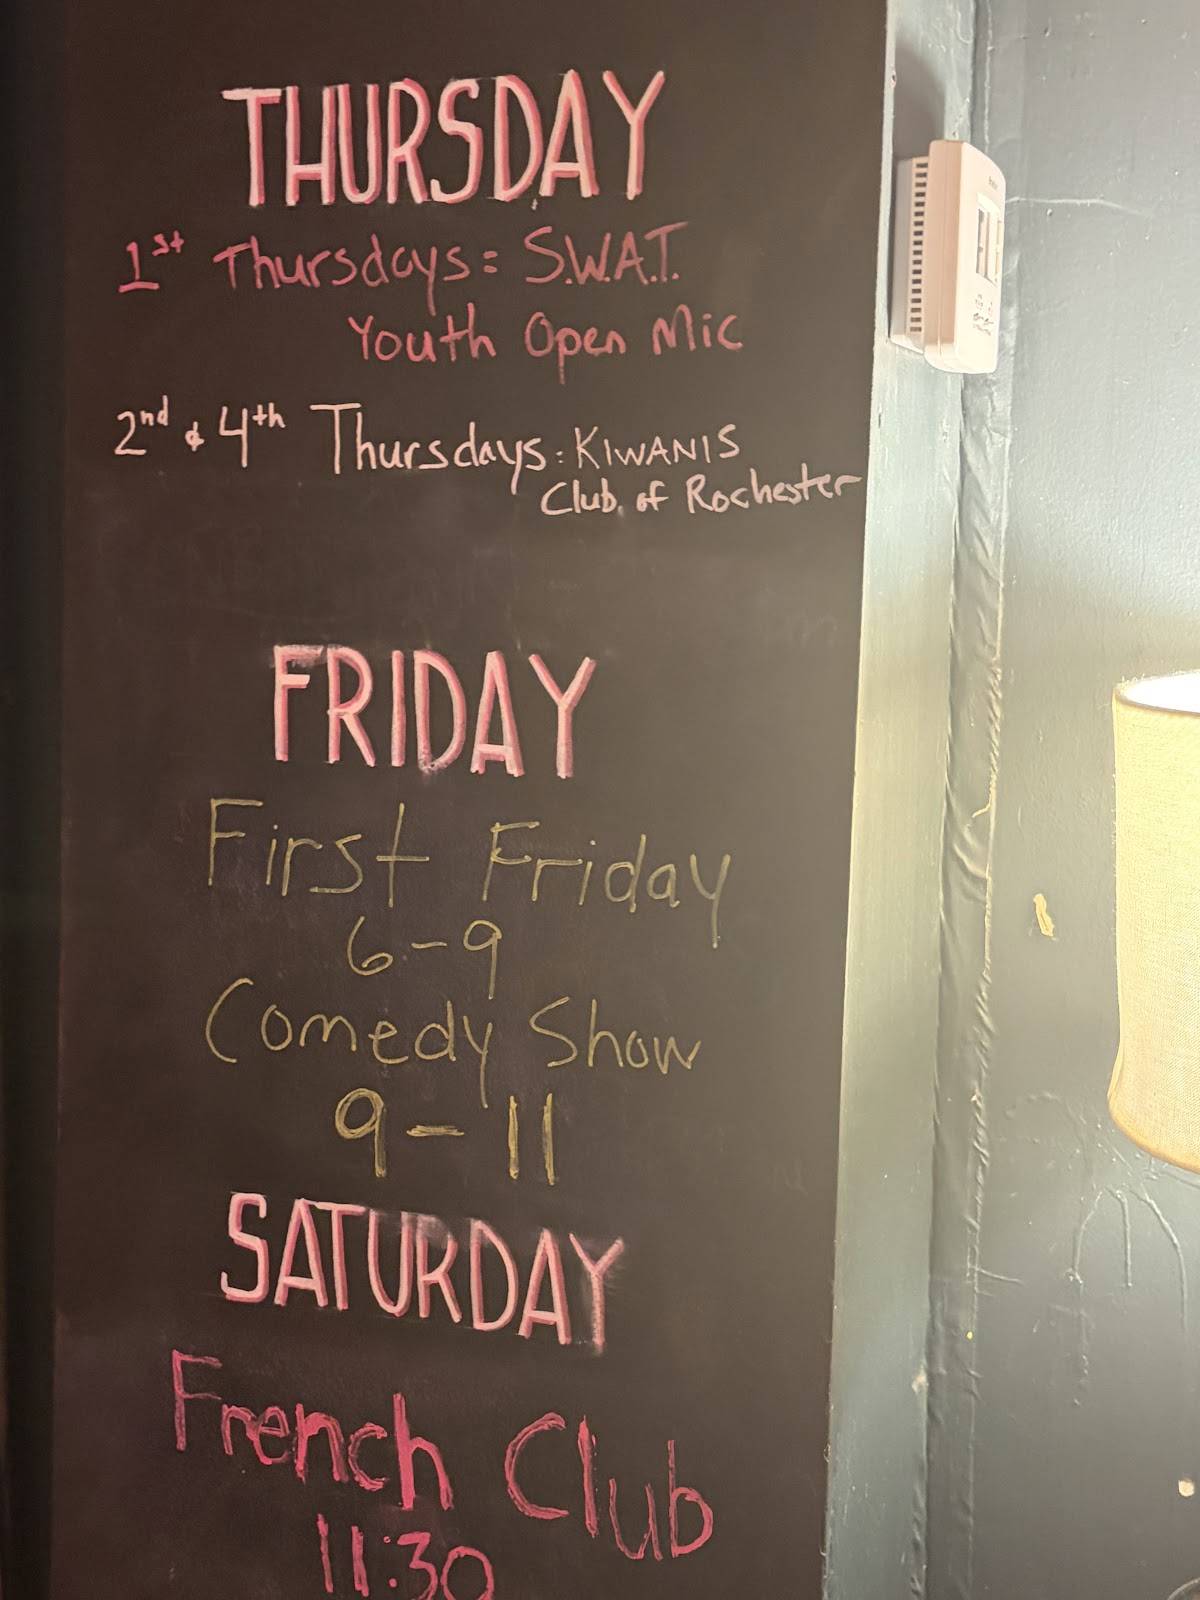 THURSDAY
1st Thursdays = S.W.A.T.
Youth Open Mic
2nd & 4th Thursdays: KIWANIS
Club of Rochester
FRIDAY
First Friday
6-9
Comedy Show
9-11
SATURDAY
French Club
11:30